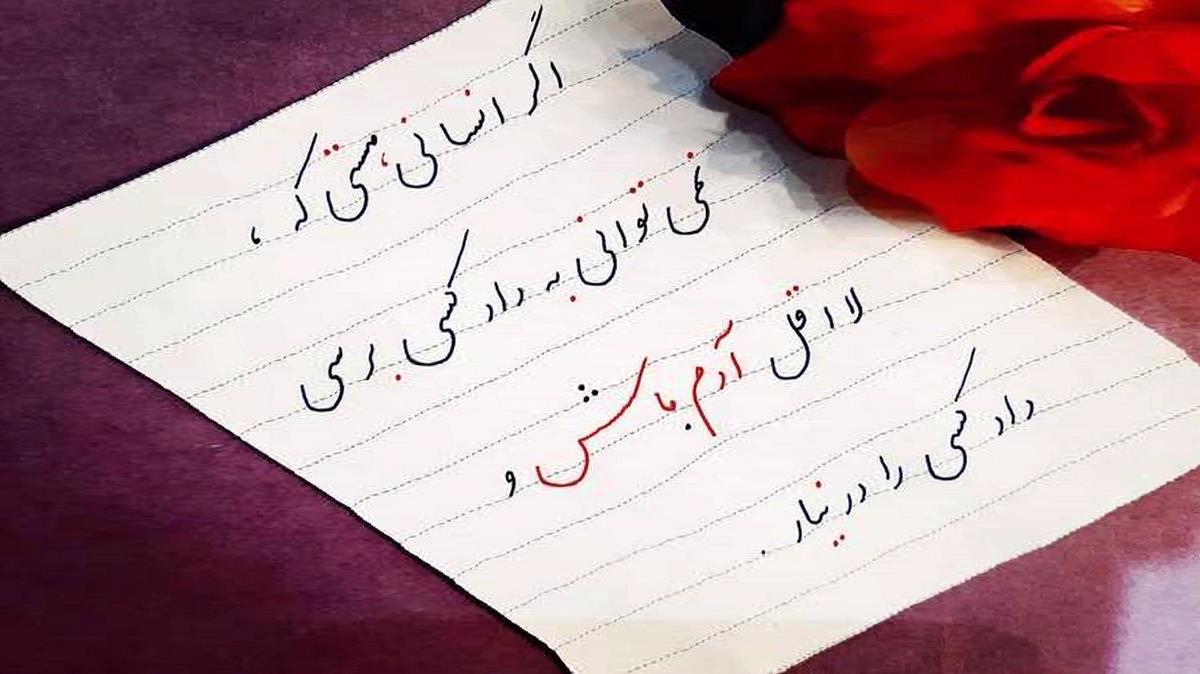 اگر انسانی، هستی که،
نمی توانی به داد کسی برسی
لااقل آدم باش و
داد کسی را در نیار.